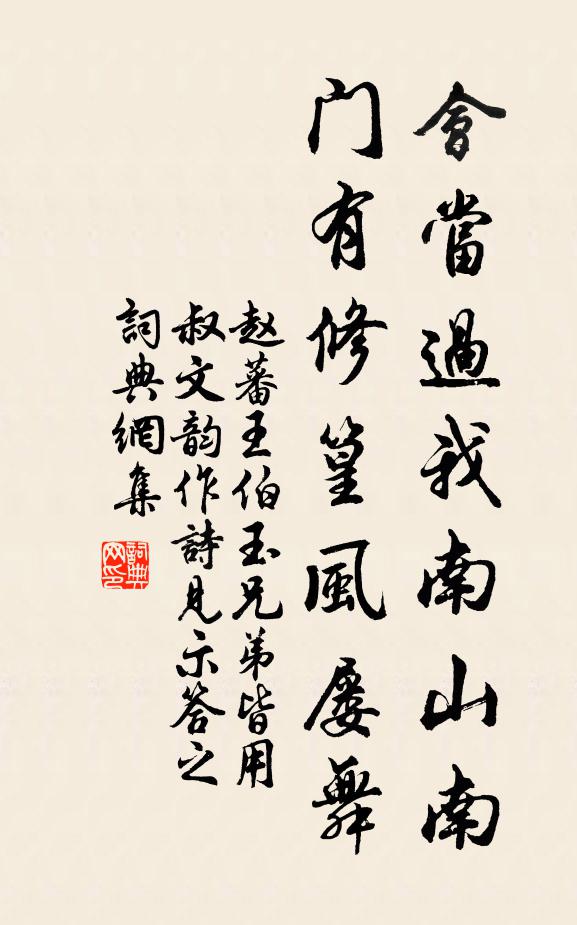 會當過我南山南
門有修篁風屡舞
赵蕃王伯玉兄弟皆用
叔文韵作詩見示答之
詞典網集
詞典网印